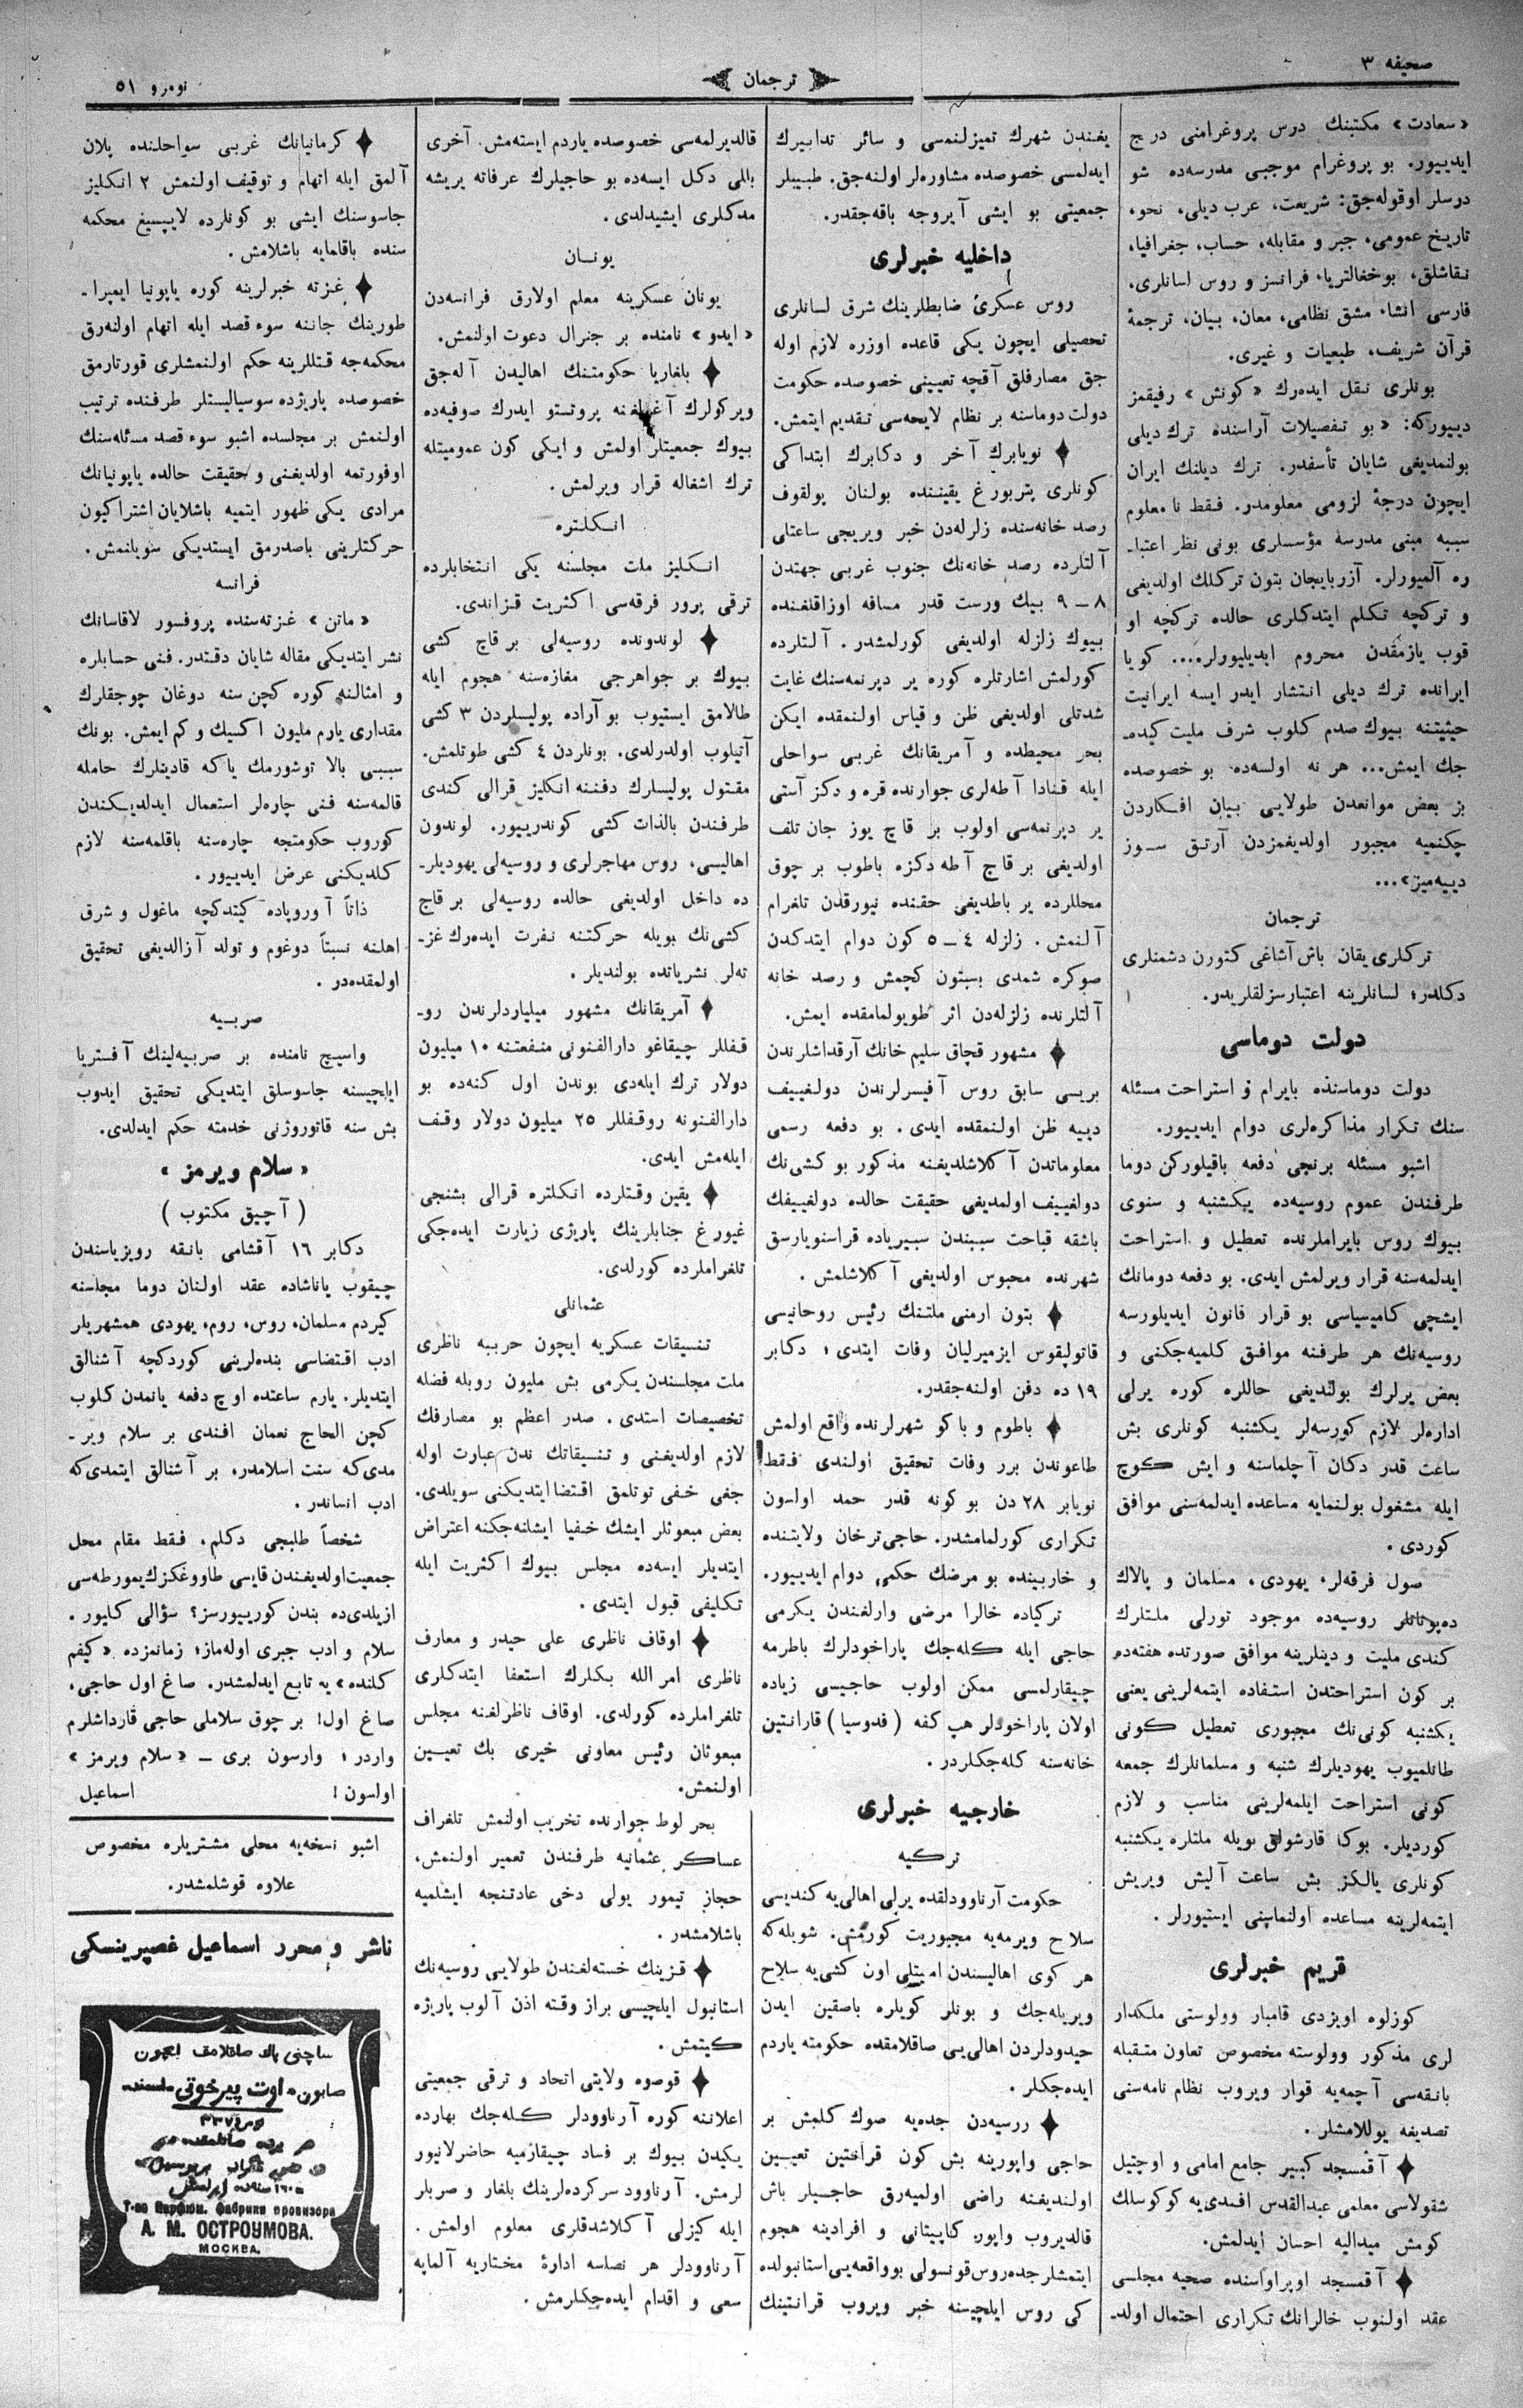 صحیفه ۳
ترجمان
نومرو ۵۱
«سعادت» مكتبنك درس پروغرامنی درج
ایدییور. بو پروغرام موجبی مدرسه‌ده شو
درسلر اوقوله‌جق: شریعت، عرب دیلی، نحو،
تاریخ عمومی، جبر و مقابله، حساب، جغرافیا،
نقاشلق، بوخغالتریا، فرانسز و روس لسانلری،
فارسی انشاء مشق نظامی، معان، بیان، ترجمهٔ
قرآن شریف، طبعیات و غیری.
بونلری نقل ایده‌رك «كونش» رفیقمز
دییوركه: «بو تفصیلات آراسنده ترك دیلی
بولنمدیغی شایان تأسفدر. ترك دیلنك ایران
ایچون درجهٔ لزومی معلومدر. فقط نا معلوم
سببه مبنی مدرسه مؤسسلری بونی نظر اعتبا-
ره آلمیورلر. آزربایجان بتون تركلك اولدیغی
و تركچه تكلم ایتدكلری حالده تركچه او
قوب یازمقدن محروم ایدیلیورلر.... كویا
ایرانده ترك دیلی انتشار ایدر ایسه ایرانیت
حیثیتنه بیوك صدم كلوب شرف ملیت كیده‌-
جك ایمش... هر نه اولسه‌ده بو خصوصده
بز بعض موانعدن طولایی بیان افكاردن
چكنمیه مجبور اولدیغمزدن آرتق سوز
دییه‌میز»...
ترجمان
تركلری یقان باش آشاغی كتورن دشمنلری
دكلدر؛ لسانلرینه اعتبارسزلقلریدر.
دولت دوماسی
دولت دوماسنده بایرام و استراحت مسئله
سنك تكرار مذاكره‌لری دوام ایدییور.
اشبو مسئله برنجی دفعه باقیلوركن دوما
طرفندن عموم روسیه‌ده یكشنبه و سنوی
بیوك روس بایراملرنده تعطیل و استراحت
ایدلمه‌سنه قرار ویرلمش ایدی. بو دفعه دومانك
ایشچی كامیسیاسی بو قرار قانون ایدیلورسه
روسیه‌نك هر طرفنه موافق كلمیه‌جكنی و
بعض یرلرك بولندیغی حاللره كوره یرلی
اداره‌لر لازم كورسه‌لر یكشنبه كونلری بش
ساعت قدر دكان آچلماسنه و ایش كوچ
ایله مشغول بولنمایه مساعده ایدلمه‌سنی موافق
كوردی.
صول فرقه‌لر، یهودی، مسلمان و پالاك
ده‌پوتاتلر روسیه‌ده موجود تورلی ملتلرك
كندی ملیت و دینلرینه موافق صورتده هفته‌ده
بر كون استراحتدن استفاده ایتمه‌لرینی یعنی
یكشنبه كونی‌نك مجبوری تعطیل كونی
طانلمیوب یهودیلرك شنبه و مسلمانلرك جمعه
كونی استراحت ایلمه‌لرینی مناسب و لازم
كوردیلر. بوكا قارشولق بویله ملتلره یكشنبه
كونلری یالكز بش ساعت آلیش ویریش
ایتمه‌لرینه مساعده اولنماسنی ایستیورلر.
قریم خبرلری
كوزلوه اویزدی قامبار وولوستی ملكدار
لری مذكور وولوسته مخصوص تعاون متقبله
بانقه‌سی آچمه‌یه قرار ویروب نظام نامه‌سنی
تصدیقه یوللامشلر.
آقمسجد كبیر جامع امامی و اوچتیل
شقولاسی معلمی عبدالقدس افندی‌یه كوكوسلك
كومش میدالیه احسان ایدلمش.
آقمسجد اوپراواسنده صحیه مجلسی
عقد اولنوب خالرانك تكراری احتمال اولد-
یغندن شهرك تمیزلنمسی و سائر تدابیرك
ایدلمسی خصوصده مشاوره‌لر اولنه‌جق. طبیبلر
جمعیتی بو ایشی آیروجه باقه‌جقدر.
داخلیه خبرلری
روس عسكری ضابطلرینك شرق لسانلری
تحصیلی ایچون یكی قاعده اوزره لازم اوله
جق مصارفلق آقچه تعیینی خصوصده حكومت
دولت دوماسنه بر نظام لایحه‌سی تقدیم ایتمش.
نویابرك آخر و دكابرك ابتداكی
كونلری پتربورغ یقیننده بولنان پولقوف
رصد خانه‌سنده زلزله‌دن خبر ویریجی ساعتلی
آلتلرده رصد خانه‌نك جنوب غربی جهتدن
۸-۹ بیك ورست قدر مسافه اوزاقلغنده
بیوك زلزله اولدیغی كورلمشدر. آلتلرده
كورلمش اشارتلره كوره یر دپرنمه‌سنك غایت
شدتلی اولدیغی ظن و قیاس اولنمقده ایكن
بحر محیطده و آمریقانك غربی سواحلی
ایله قنادا آطه‌لری جوارنده قره و دكز آستی
یر دپرنمه‌سی اولوب بر قاچ یوز جان تلف
اولدیغی بر قاج آطه دكزه باطوب بر چوق
محللرده یر باطدیغی حقنده نیورقدن تلغرام
آلنمش. زلزله ۴-۵ كون دوام ایتدكدن
صوكره شمدی بسبتون كچمش و رصد خانه
آلتلرنده زلزله‌دن اثر طویولمامقده ایمش.
مشهور قچاق سلیم خانك آرقداشلرندن
بریسی سابق روس آفیسرلرندن دولغییف
دییه ظن اولنمقده ایدی. بو دفعه رسمی
معلوماتدن آكلاشلدیغنه مذكور بو كشی‌نك
دولغییف اولمدیغی حقیقت حالده دولغییفك
باشقه قباحت سببندن سیبریاده قراسنویارسق
شهرنده محبوس اولدیغی آكلاشلمش.
بتون ارمنی ملتنك رئیس روحانیسی
قاتولیقوس ایزمیرلیان وفات ایتدی؛ دكابر
۱۹ ده دفن اولنه‌جقدر.
باطوم و باكو شهرلرنده واقع اولمش
طاعوندن برر وفات تحقیق اولندی فقط
نویابر ۲۸ دن بو كونه قدر حمد اولسون
تكراری كورلمامشدر. حاجی‌ترخان ولایتنده
و خاربینده بو مرضك حكمی دوام ایدییور.
تركیاده خالرا مرضی وارلغندن یكرمی
حاجی ایله كله‌جك پاراخودلرك باطرمه
چیقارلمسی ممكن اولوب حاجیسی زیاده
اولان پاراخودلر هپ كفه (فدوسیا) قارانتین
خانه‌سنه كله‌جكلردر.
خارجیه خبرلری
تركیه
حكومت آرناوودلقده یرلی اهالی‌یه كندیسی
سلاح ویرمه‌یه مجبوریت كورمش. شویله‌كه
هر كوی اهالیسندن امیتلی اون كشی‌یه سلاح
ویریله‌جك و بونلر كویلره باصقین ایدن
حیدودلردن اهالی‌یی صاقلامقده حكومته یاردم
ایده‌جكلر.
روسیه‌دن جده‌یه صوك كلمش بر
حاجی واپورینه بش كون قرانتین تعیین
اولندیغنه راضی اولمیه‌رق حاجیلر باش
قالدیروب واپور كاپیتانی و افرادینه هجوم
ایتمشلر جده روس قونسولی بو واقعه‌یی استانبولده
كی روس ایلچیسنه خبر ویروب قرانتینك
قالدیرلمه‌سی خصوصده یاردم ایسته‌مش. آخری
باللی دكل ایسه‌ده بو حاجیلرك عرفاته یریشه
مدكلری ایشیدلدی.
یونان
یونان عسكرینه معلم اولارق فرانسه‌دن
«ایدو» نامنده بر جنرال دعوت اولنمش.
بلغاریا حكومتنك اهالیدن آله‌جق
ویركولرك آغرلغنه پروتستو ایدرك صوفیه‌ده
بیوك جمعیتلر اولمش و ایكی كون عمومیتله
ترك اشغاله قرار ویرلمش.
انكلتره
انكلیز ملت مجلسنه یكی انتخابلرده
ترقی پرور فرقه‌سی اكثریت قزاندی.
لوندونده روسیه‌لی بر قاچ كشی
بیوك بر جواهرجی مغازه‌سنه هجوم ایله
طالامق ایستیوب بو آراده پولیسلردن ۳ كشی
آتیلوب اولدرلدی. بونلردن ۴ كشی طوتلمش.
مقتول پولیسلرك دفننه انكلیز قرالی كندی
طرفندن بالذات كشی كوندریبور. لوندون
اهالیسی، روس مهاجرلری و روسیه‌لی یهودیلر-
ده داخل اولدیغی حالده روسیه‌لی بر قاج
كشی‌نك بویله حركتنه نفرت ایده‌رك غز-
ته‌لر نشریاتده بولندیلر.
آمریقانك مشهور میلیاردلرندن رو-
قفللر چیقاغو دارالفنونی منفعتنه ۱۰ میلیون
دولار ترك ایله‌دی بوندن اول كنه‌ده بو
دارالفنونه روقفللر ۲۵ میلیون دولار وقف
ایله‌مش ایدی.
یقین وقتلرده انكلتره قرالی بشنجی
غیورغ جنابلرینك پاریژی زیارت ایده‌جكی
تلغراملرده كورلدی.
عثمانلی
تنسیقات عسكریه ایچون حربیه ناظری
ملت مجلسندن یكرمی بش ملیون روبله فضله
تخصیصات استدی. صدر اعظم بو مصارفك
لازم اولدیغنی و تنسیقاتك ندن عبارت اوله
جغی خفی توتلمق اقتضا ایتدیكنی سویلدی.
بعض مبعوثلر ایشك خفیا ایشلنه‌جكنه اعتراض
ایتدیلر ایسه‌ده مجلس بیوك اكثریت ایله
تكلیفی قبول ایتدی.
اوقاف ناظری علی حیدر و معارف
ناظری امر الله بكلرك استعفا ایتدكلری
تلغراملرده كورلدی. اوقاف ناظرلغنه مجلس
مبعوثان رئیس معاونی خیری بك تعیین
اولنمش.
بحر لوط جوارنده تخریب اولنمش تلغراف
عساكر عثمانیه طرفندن تعمیر اولنمش،
حجاز تیمور یولی دخی عادتنجه ایشلمیه
باشلامشدر.
قزینك خسته‌لغندن طولایی روسیه‌نك
استانبول ایلچیسی براز وقته اذن آلوب پاریژه
كیتمش.
قوصوه ولایتی اتحاد و ترقی جمعیتی
اعلاننه كوره آرناوودلر كله‌جك بهارده
یكیدن بیوك بر فساد چیقارمیه حاضرلانیور
لرمش. آرناوود سركرده‌لرینك بلغار و صربلر
ایله كیزلی آكلاشدقلری معلوم اولمش.
آرناوودلر هر نصلسه ادارهٔ مختاریه آلمایه
سعی و اقدام ایده‌جكلرمش.
كرمانیانك غربی سواحلنده پلان
آلمق ایله اتهام و توقیف اولنمش ۲ انكلیز
جاسوسنك ایشی بو كونلرده لایپسیغ محكمه
سنده باقلمایه باشلامش.
غزته خبرلرینه كوره یاپونیا ایمپرا-
طورینك جاننه سوء قصد ایله اتهام اولنه‌رق
محكمه‌جه قتللرینه حكم اولنمشلری قورتارمق
خصوصده پاریژده سوسیالیستلر طرفنده ترتیب
اولنمش بر مجلسده اشبو سوء قصد مسئله‌سنك
اوفورتمه اولدیغنی و حقیقت حالده یاپونیانك
مرادی یكی ظهور ایتمیه باشلایان اشتراكیون
حركتلرینی باصدرمق ایستدیكی سویلنمش.
فرانسه
«ماتن» غزته‌سنده پروفسور لاقاسانك
نشر ایتدیكی مقاله شایان دقتدر. فنی حسابلره
و امثالنه كوره كچن سنه دوغان چوجقلرك
مقداری یارم ملیون اكسیك و كم ایمش. بونك
سببی بالا توشورمك یاكه قادینلرك حامله
قالمه‌سنه فنی چاره‌لر استعمال ایدلدیكندن
كوروب حكومتجه چاره‌سنه باقلمه‌سنه لازم
كلدیكنی عرض ایدییور.
ذاتاً آوروپاده كیتدكچه ماغول و شرق
اهلنه نسبتاً دوغوم و تولد آزالدیغی تحقیق
اولمقده‌در.
صربیه
واسیچ نامنده بر صربیه‌لینك آفستریا
ایلچیسنه جاسوسلق ایتدیكی تحقیق ایدوب
بش سنه قاتوروژنی خدمته حكم ایدلدی.
«سلام ویرمز»
(آچیق مكتوب)
دكابر ۱۶ آقشامی بانقه رویزیاسندن
چیقوب یاناشاده عقد اولنان دوما مجلسنه
كیردم مسلمان، روس، روم، یهودی همشهریلر
ادب اقتضاسی بنده‌لرینی كوردكچه آشنالق
ایتدیلر. یارم ساعتده اوچ دفعه یانمدن كلوب
كچن الحاج نعمان افندی بر سلام ویر-
مدی‌كه سنت اسلامدر، بر آشنالق ایتمدی‌كه
ادب انساندر.
شخصاً طلبجی دكلم، فقط مقام محل
جمعیت اولدیغندن قایسی طاووغكزك یمورطه‌سی
ازیلدی‌ده بندن كوریبورسز؟ سؤالی كلیور.
سلام و ادب جبری اوله‌ماز؛ زمانمزده «كیفم
كلنده» یه تابع ایدلمشدر. صاغ اول حاجی،
صاغ اول! بر چوق سلاملی حاجی قارداشلرم
واردر؛ وارسون بری – «سلام ویرمز»
اولسون! اسماعیل
اشبو نسخه‌یه محلی مشتریلره مخصوص
علاوه قوشلمشدر.
ناشر و محرر اسماعیل غصپرینسكی
ساچنی پاك صاقلامق ایچون
صابون
هر یرده صاتلمقده
Т-во Парфюм. Фабрики провизора
А. М. ОСТРОУМОВА.
МОСКВА.